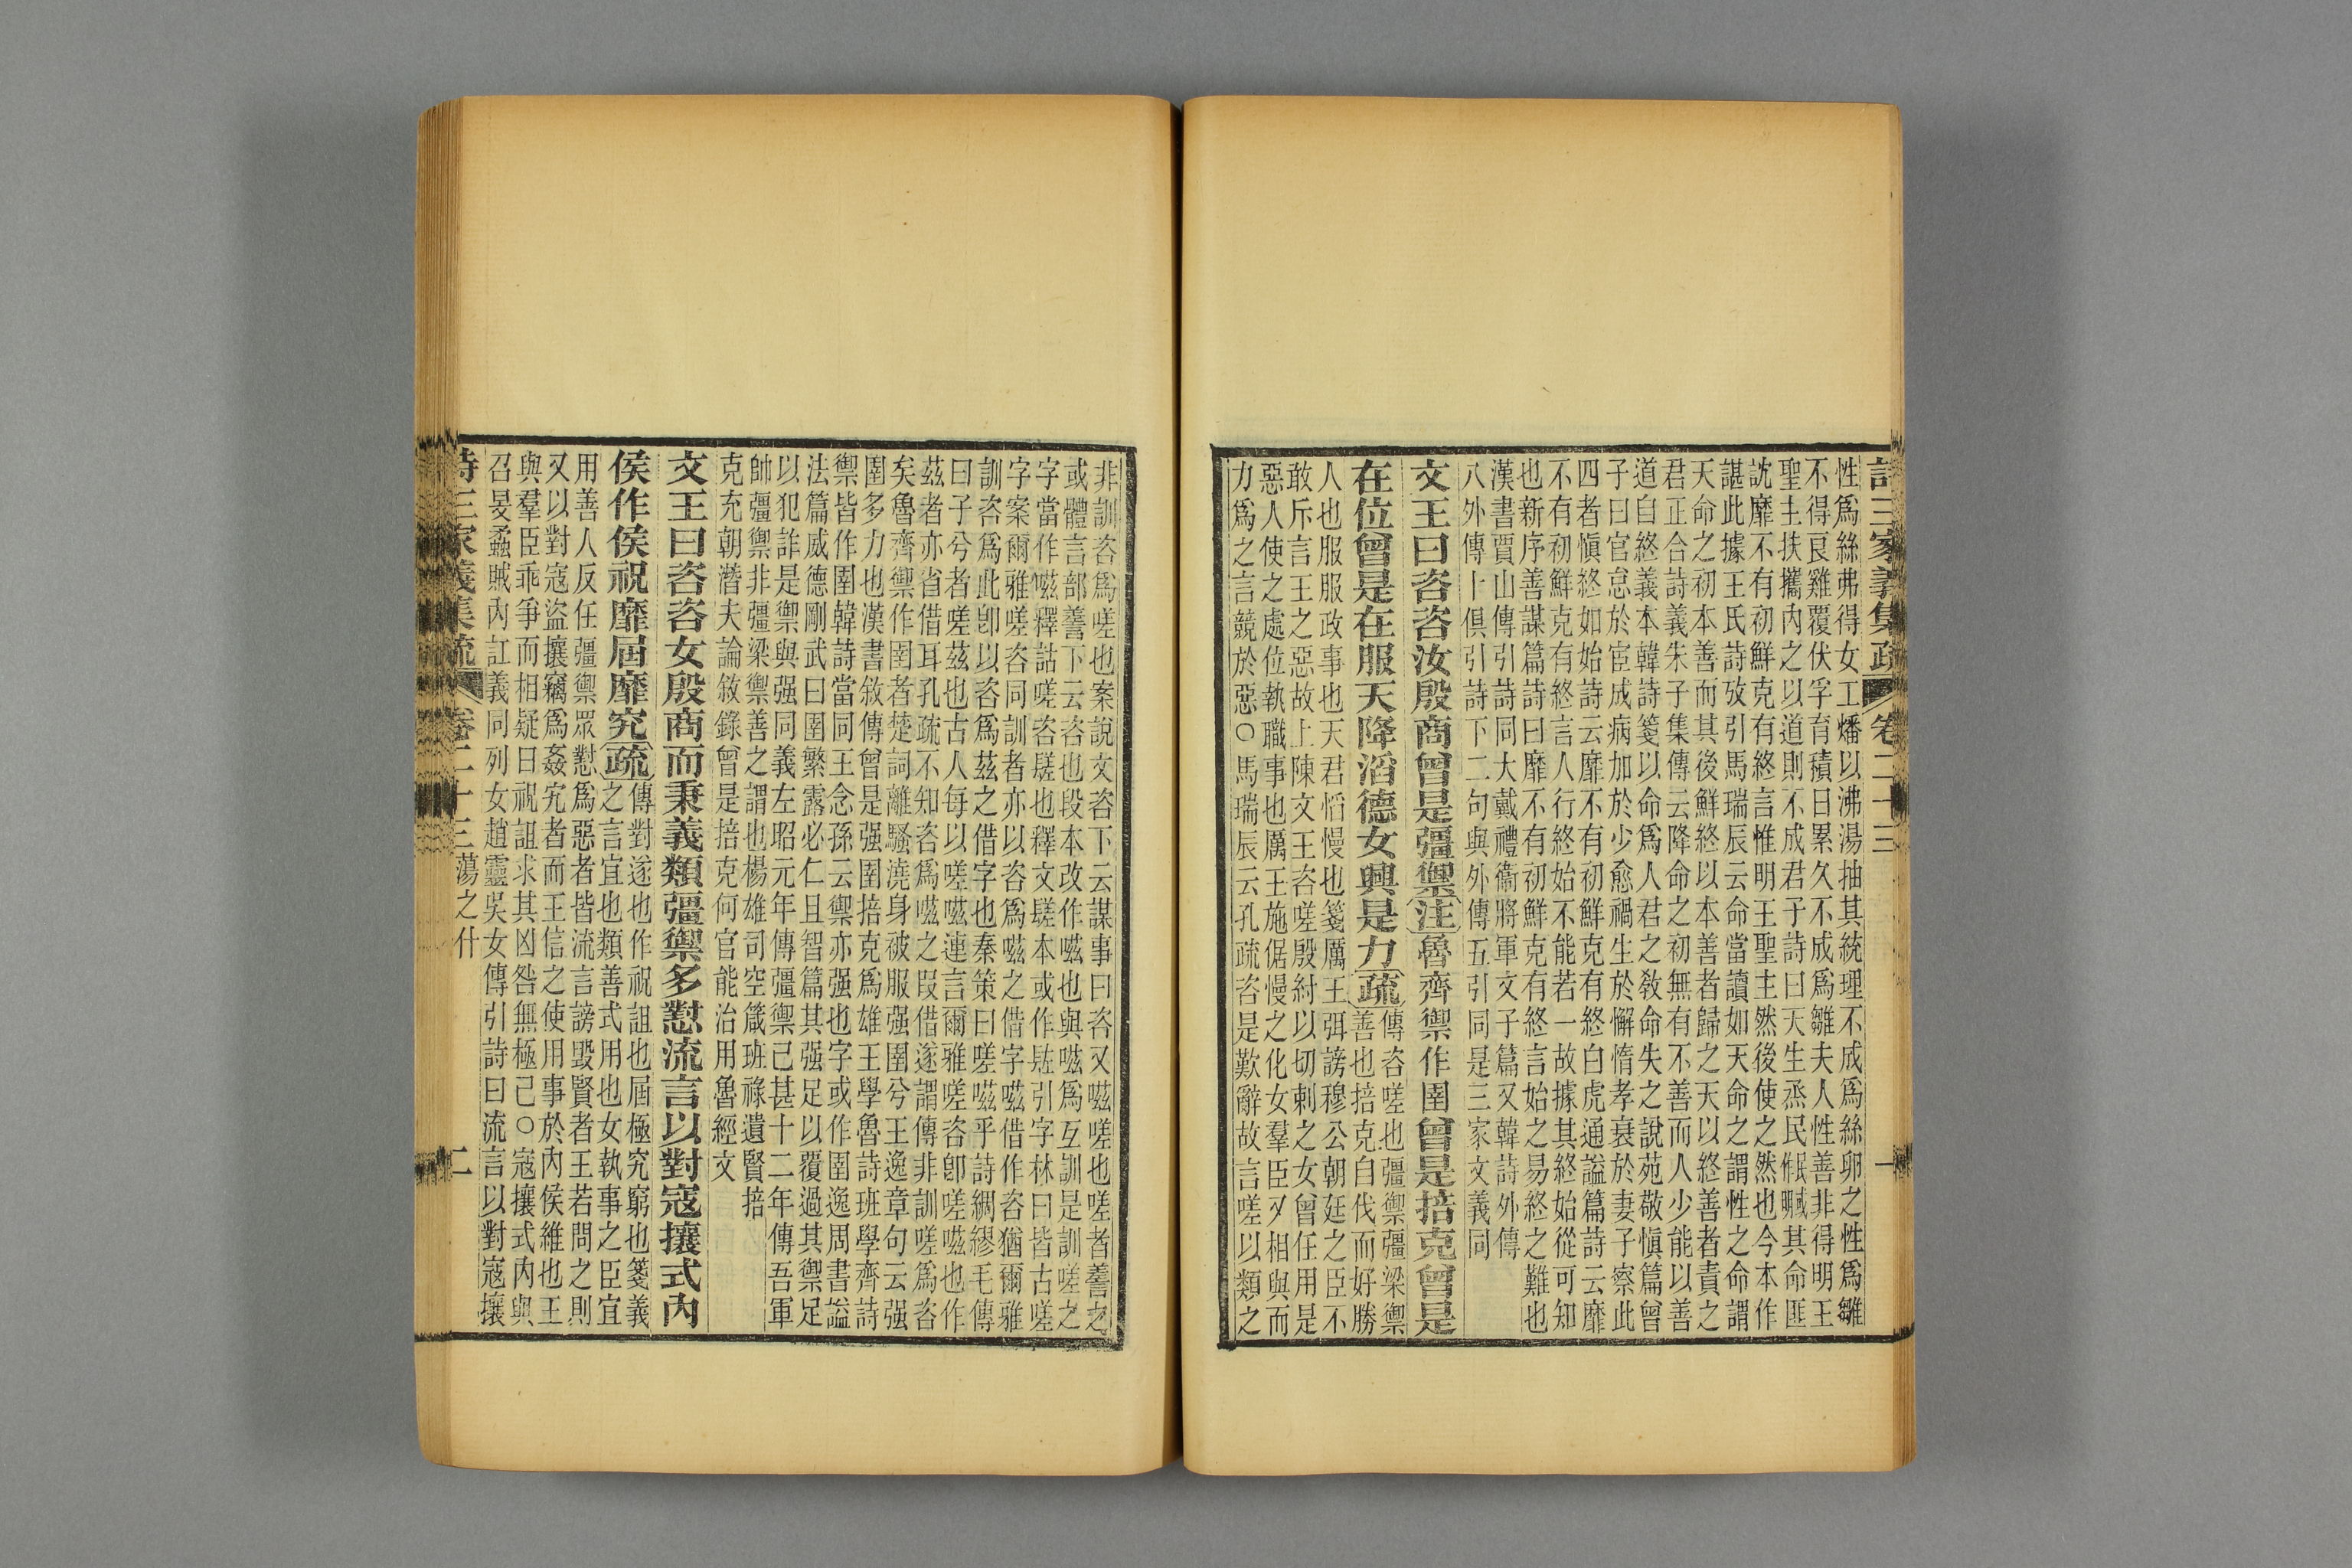 詩三家義集疏 卷二十三 一
性爲絲弗得女工燔以沸湯抽其統理不成爲絲卵之性爲雛
不得良雞覆伏孚育積日累久不成爲雛夫人性善非得明王
聖主扶攜內之以道則不成君子詩曰天生烝民其命匪
訦靡不有初鮮克有終言惟明王聖主然後使之然也今本作
諶此據王氏詩攷引馬瑞辰云命當讀如天命之謂性之命謂
天命之初本善而其後鮮終以本善者歸之天以終善者責之
君正合詩義朱子集傳云降命之初無有不善而人少能以善
道自終義本韓詩箋以命爲人君之敎命失之說苑敬愼篇曾
子曰官怠於宦成病加於少愈禍生於懈惰孝衰於妻子察此
四者愼終如始詩云靡不有初鮮克有終白虎通謚篇詩云靡
不有初鮮克有終言人行終始不能若一故據其終始從可知
也新序善謀篇詩曰靡不有初鮮克有終言始之易終之難也
漢書賈山傳引詩同大戴禮衞將軍文子篇又韓詩外傳
八外傳十俱引詩下二句與外傳五引同是三家文義同
文王曰咨咨汝殷商曾是彊禦注魯齊禦作圉曾是掊克曾是
在位曾是在服天降滔德女興是力疏傳咨嗟也彊禦彊梁禦
善也掊克自伐而好勝
人也服服政事也天君慆慢也箋厲王弭謗穆公朝廷之臣不
敢斥言王之惡故上陳文王咨嗟殷紂以切刺之女曾任用是
惡人使之處位執職事也厲王施倨慢之化女羣臣又相與而
力爲之言競於惡○馬瑞辰云孔疏咨是歎辭故言嗟以類之
非訓咨爲嗟也案說文咨下云謀事曰咨又嗞嗟也嗟者謩之
或體言部謩下云咨也段本改作嗞也與嗞爲互訓是訓嗟之
字當作嗞釋詁嗟咨䰈也釋文䰈本或作𨲠引字林曰皆古嗟
字案爾雅嗟咨同訓者亦以咨爲嗞之借字嗞借作咨猶爾雅
訓咨爲此卽以咨爲茲之借字也秦策曰嗟嗞乎詩綢繆毛傳
曰子兮者嗟茲也古人每以嗟嗞連言爾雅嗟咨卽嗟嗞也作
茲者亦省借耳孔疏不知咨爲嗞之叚借遂謂傳非訓嗟爲咨
矣魯齊禦作圉者楚詞離騷澆身被服强圉兮王逸章句云强
圉多力也漢書敘傳曾是强圉掊克爲雄王學魯詩班學齊詩
禦皆作圉韓詩當同王念孫云禦亦强也字或作圉逸周書謚
法篇威德剛武曰圉繁露必仁且智篇其强足以覆過其禦足
以犯詐是禦與强同義左昭元年傳彊禦已甚十二年傳吾軍
帥彊禦非彊梁禦善之謂也楊雄司空箴班祿遺賢掊
克充朝潛夫論敘錄曾是掊克何官能治用魯經文
文王曰咨咨女殷商而秉義類彊禦多懟流言以對寇攘式內
侯作侯祝靡屆靡究疏傳對遂也作祝詛也屆極究窮也箋義
之言宜也類善式用也女執事之臣宜
用善人反任彊禦眾懟爲惡者皆流言謗毀賢者王若問之則
又以對寇盜攘竊爲姦宄者而王信之使用事於內侯維也王
與羣臣乖爭而相疑日祝詛求其凶咎無極已○寇攘式內與
召旻蟊賊內訌義同列女趙靈吳女傳引詩曰流言以對寇攘
詩三家義集疏 卷二十三 蕩之什 二